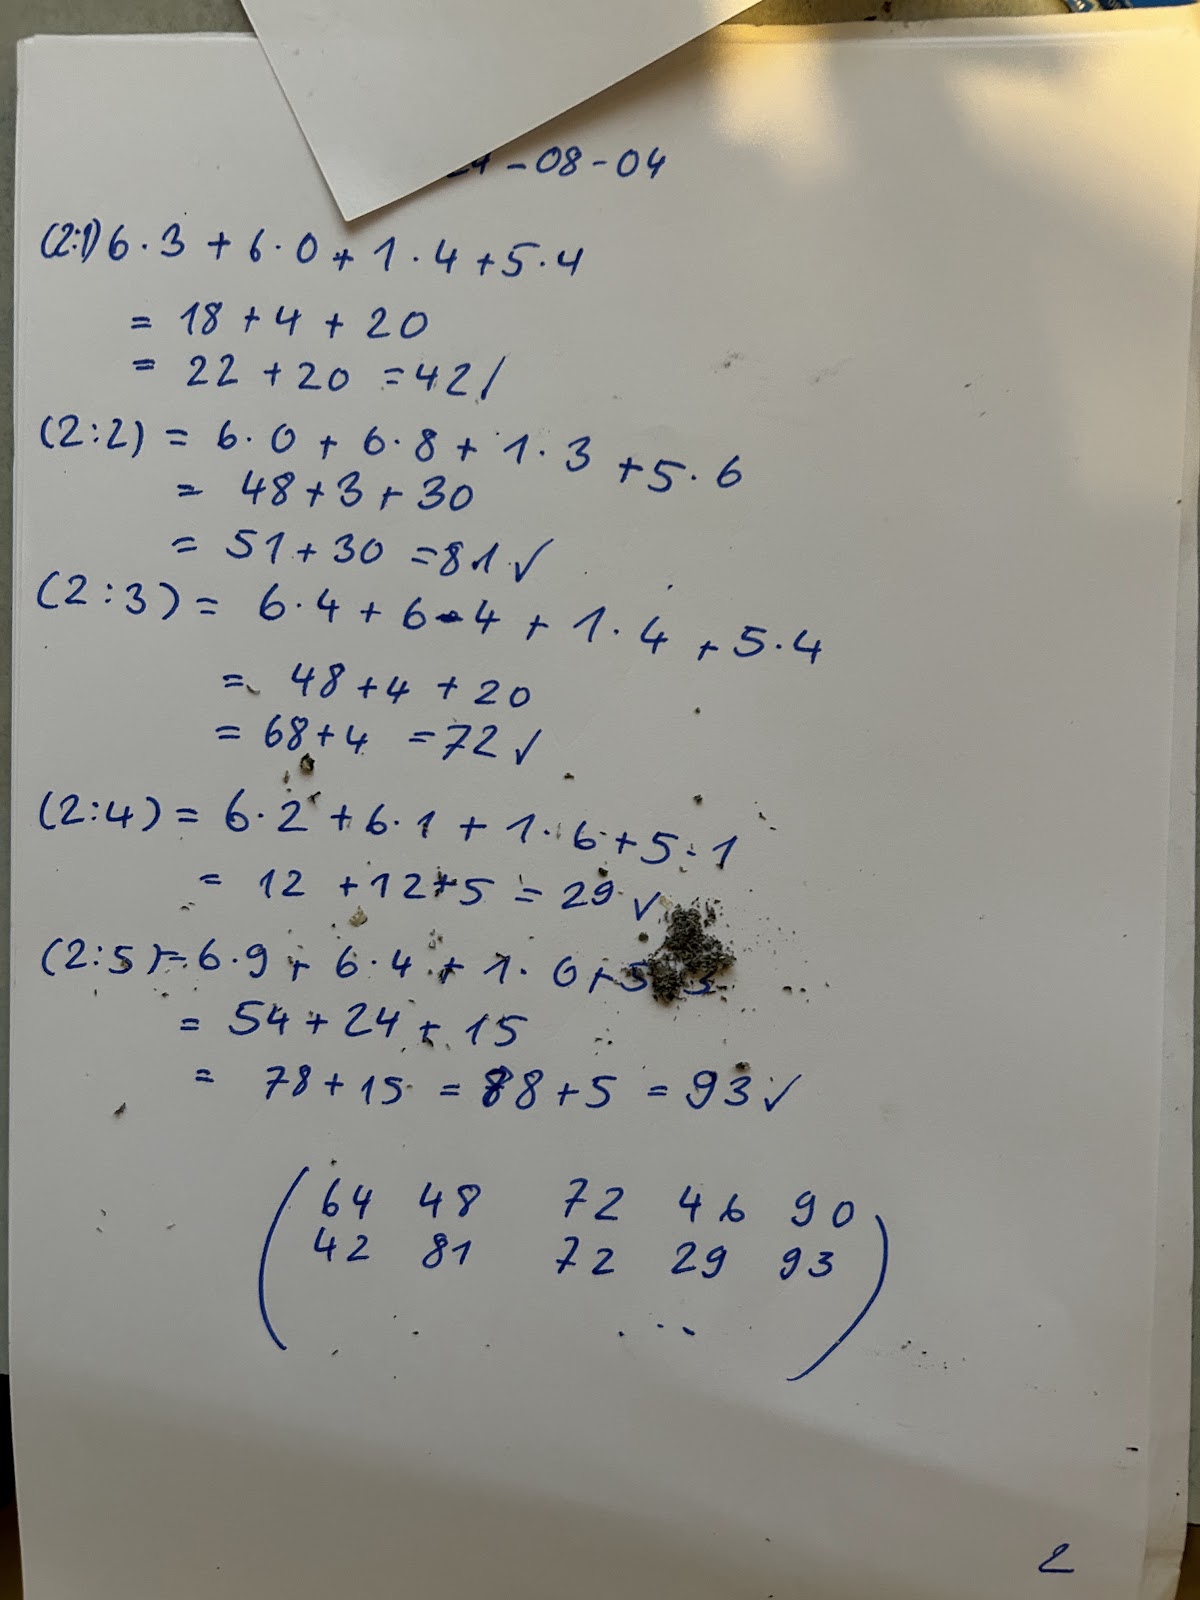 -08-04
(2:1) 6·3 + 6·0 + 1·4 + 5·4
= 18 + 4 + 20
= 22 + 20 = 42 /
(2:2) = 6·0 + 6·8 + 1·3 + 5·6
= 48 + 3 + 30
= 51 + 30 = 81 ✓
(2:3) = 6·4 + 6·4 + 1·4 + 5·4
= 48 + 4 + 20
= 68 + 4 = 72 ✓
(2:4) = 6·2 + 6·1 + 1·6 + 5·1
= 12 + 12 + 5 = 29 ✓
(2:5) = 6·9 + 6·4 + 1·0 + 5
= 54 + 24 + 15
= 78 + 15 = 88 + 5 = 93 ✓
64 48 72 46 90
42 81 72 29 93
...
2